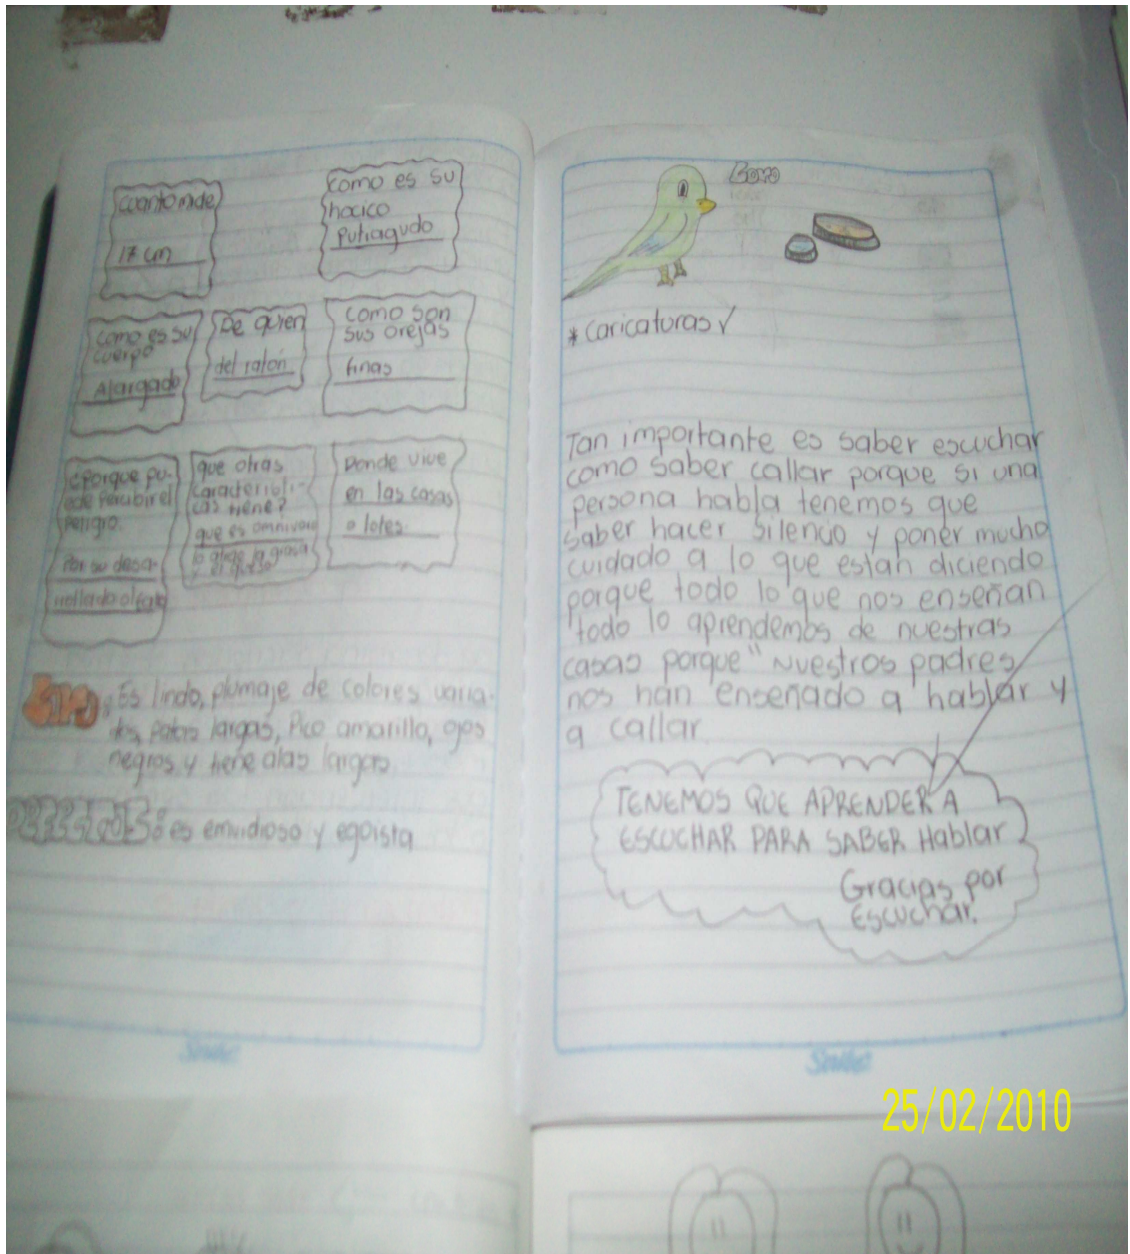 cuanto mide
17 cm
como es su
hocico
Putiagudo
como es su
cuerpo
Alargado
De quien
del ratón
como son
sus orejas
finas
¿Porque pu-
ede percibir el
Peligro.
Por su desa-
rrollado olfato
que otras
caracteristi-
cas tiene?
que es omnivoro
lo atrae la grasa
y el queso
Donde vive
en las casas
o lotes.
: Es lindo, plumaje de colores varia-
dos, patas largas, Pico amarillo, ojos
negros y tiene alas largas.
DEFECTOS: es emvidioso y egoista
Smile
Loro
* caricaturas ✓
Tan importante es saber escuchar
como saber callar porque si una
persona habla tenemos que
saber hacer silencio y poner mucho
cuidado a lo que estan diciendo
porque todo lo que nos enseñan
todo lo aprendemos de nuestras
casas porque "Nuestros padres
nos han enseñado a hablar y
a callar.
TENEMOS QUE APRENDER A
ESCUCHAR PARA SABER Hablar
Gracias por
Escuchar.
Smile
25/02/2010